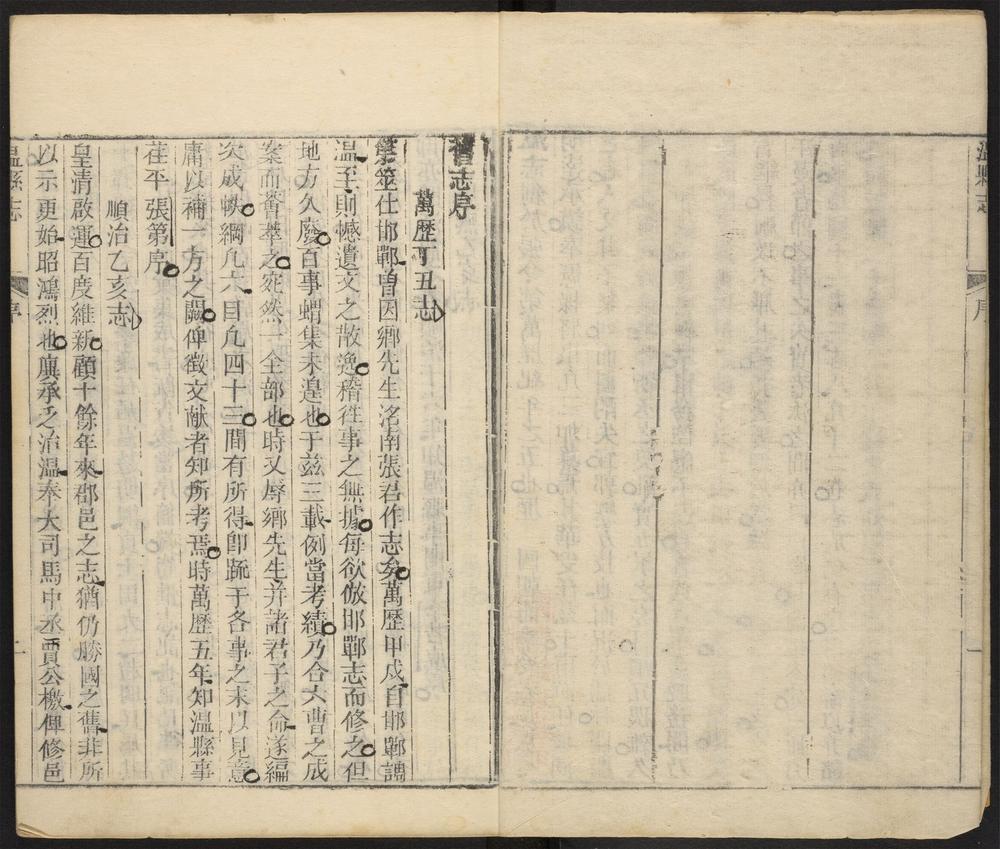 溫縣志
序
一
舊志序
萬歷丁丑志
第筮仕邯鄲曾因鄉先生洺南張君作志矣萬歷甲戌自邯鄲調
溫至則憾遺文之散逸稽往事之無據每欲倣邯鄲志而修之但
地方久廢百事蝟集未遑也于茲三載例當考績乃合六曹之成
案而薈萃之宛然一全部也時又辱鄉先生并諸君子之命遂編
次成帙綱凡六目凡四十三間有所得卽疏于各事之末以見意
庸以補一方之闕俾徵文献者知所考焉時萬歷五年知溫縣事
茌平張第序
順治乙亥志
皇清啟運百度維新顧十餘年來郡邑之志猶仍勝國之舊非所
以示更始昭鴻烈也廣承乏治溫奉大司馬中丞賈公檄俾修邑
溫縣志
序